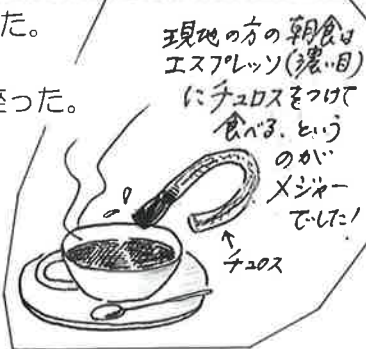 た。
座った。
現地の方の朝食は
エスプレッソ(濃い目)
にチュロスをつけて
食べる、という
のが
メジャー
でした!
チュロス